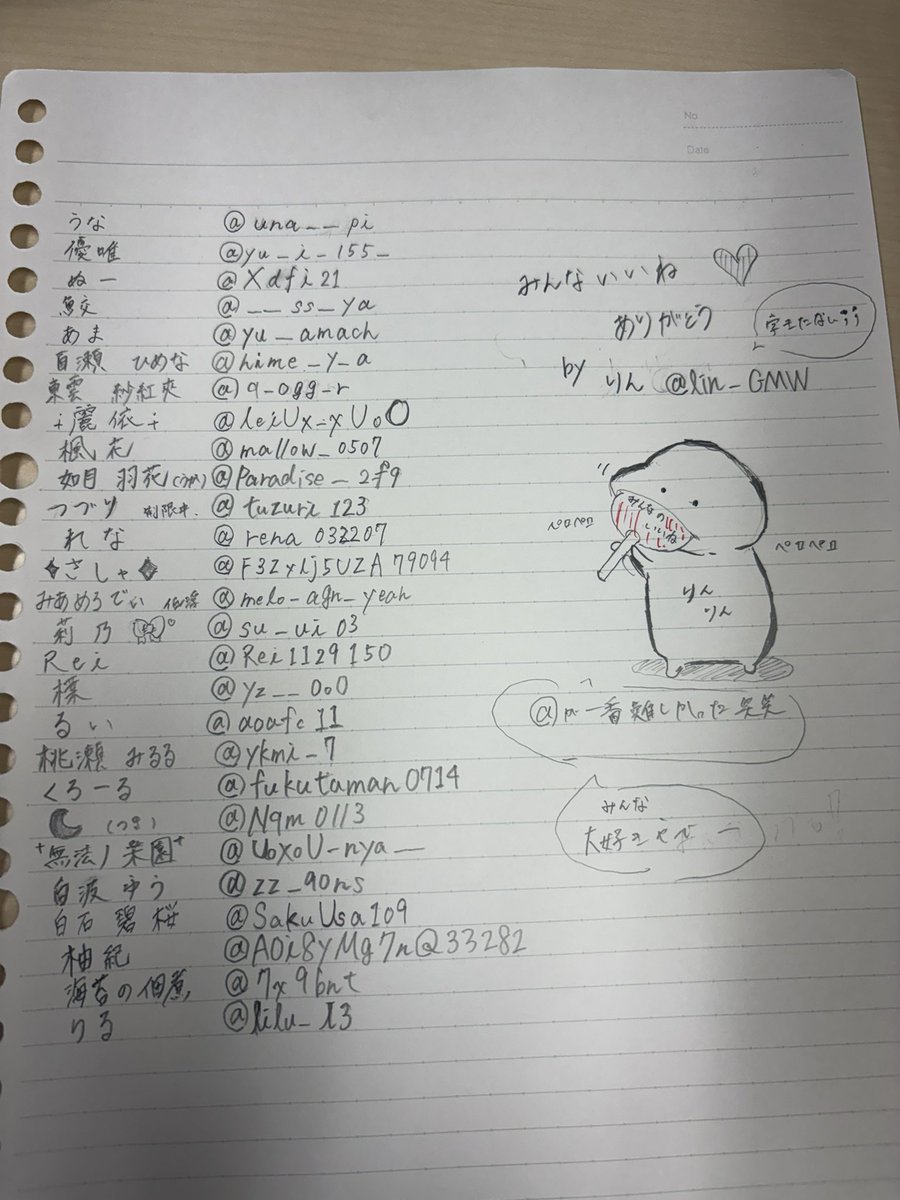 No
Date
うな @una__pi
優唯 @yu_i_155_
ぬー @Xdfi21
鮫 @__ss_ya
あま @yu_amach
百瀬 ひめな @hime_y_a
東雲 紗紅爽 @q_ogg_r
麗依 @leiUx_xUoO
楓花 @mallow_0507
如月 羽花(うか) @Paradise_2f9
つづり 制限中 @tuzuri123
れな @rena032207
◆さしゃ◆ @F3Zxlj5UZA79094
みあめろでぃ @melo_agn_yeah
莉乃 @su_ui03
Rei @Rei1129150
標 @yz__0o0
るい @aoafc11
桃瀬 みるる @ykmi_7
くろーる @fukutaman0714
(つき) @Nqm0113
+無法ノ楽園+ @UoxoU_nya__
白波 ゆう @zz_90ns
白石 碧桜 @SakuUsa109
柚紀 @A0i8yMg7nQ33282
海苔の佃煮 @7x9bnt
りる @lilu_l3
みんないいね
ありがとう
字きたない
by りん @lin_GMW
みんなの
いいね
ペロペロ
ペロペロ
りん
りん
@が一番難しかった笑笑
みんな
大好きやでー